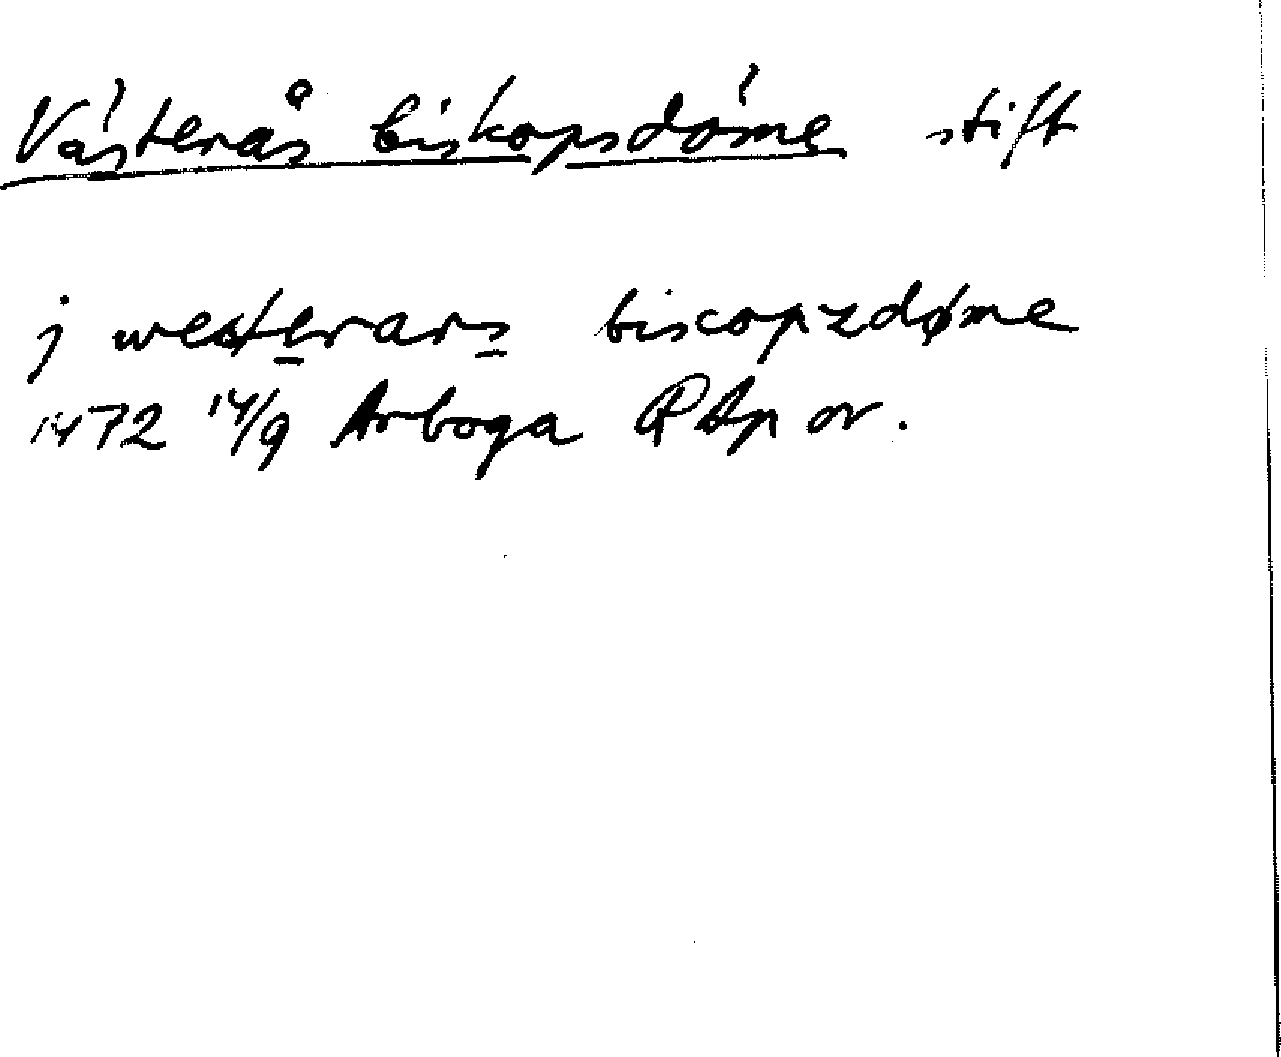 Västerås biskopsdöme stift
j westerars biscopzdøme
1472 14/9 Arboga RAp or.